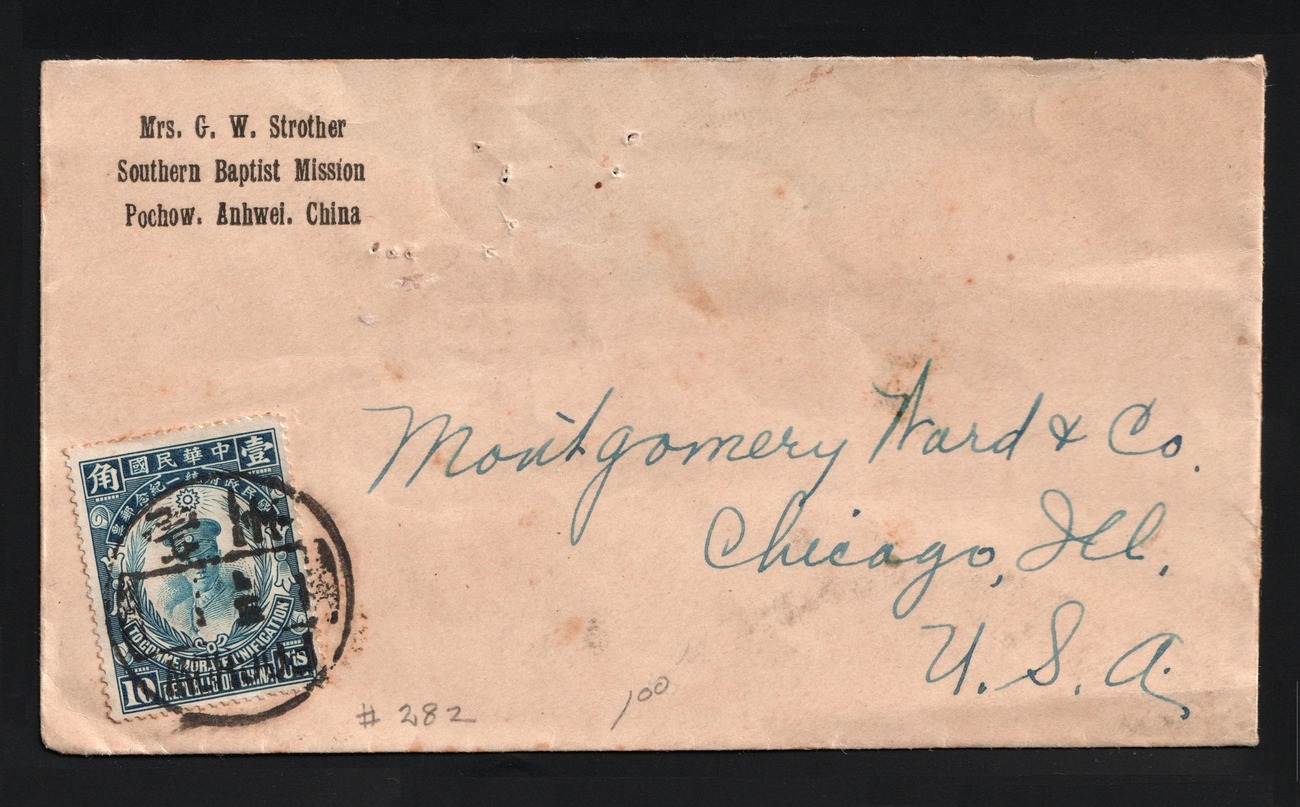 Mrs. G. W. Strother
Southern Baptist Mission
Pochow. Anhwei. China
Montgomery Ward & Co.
Chicago, Ill,
U. S. A.
角 國民華中 壹
TO COMMEMORATE UNIFICATION
REPUBLIC OF CHINA
10
# 282
100